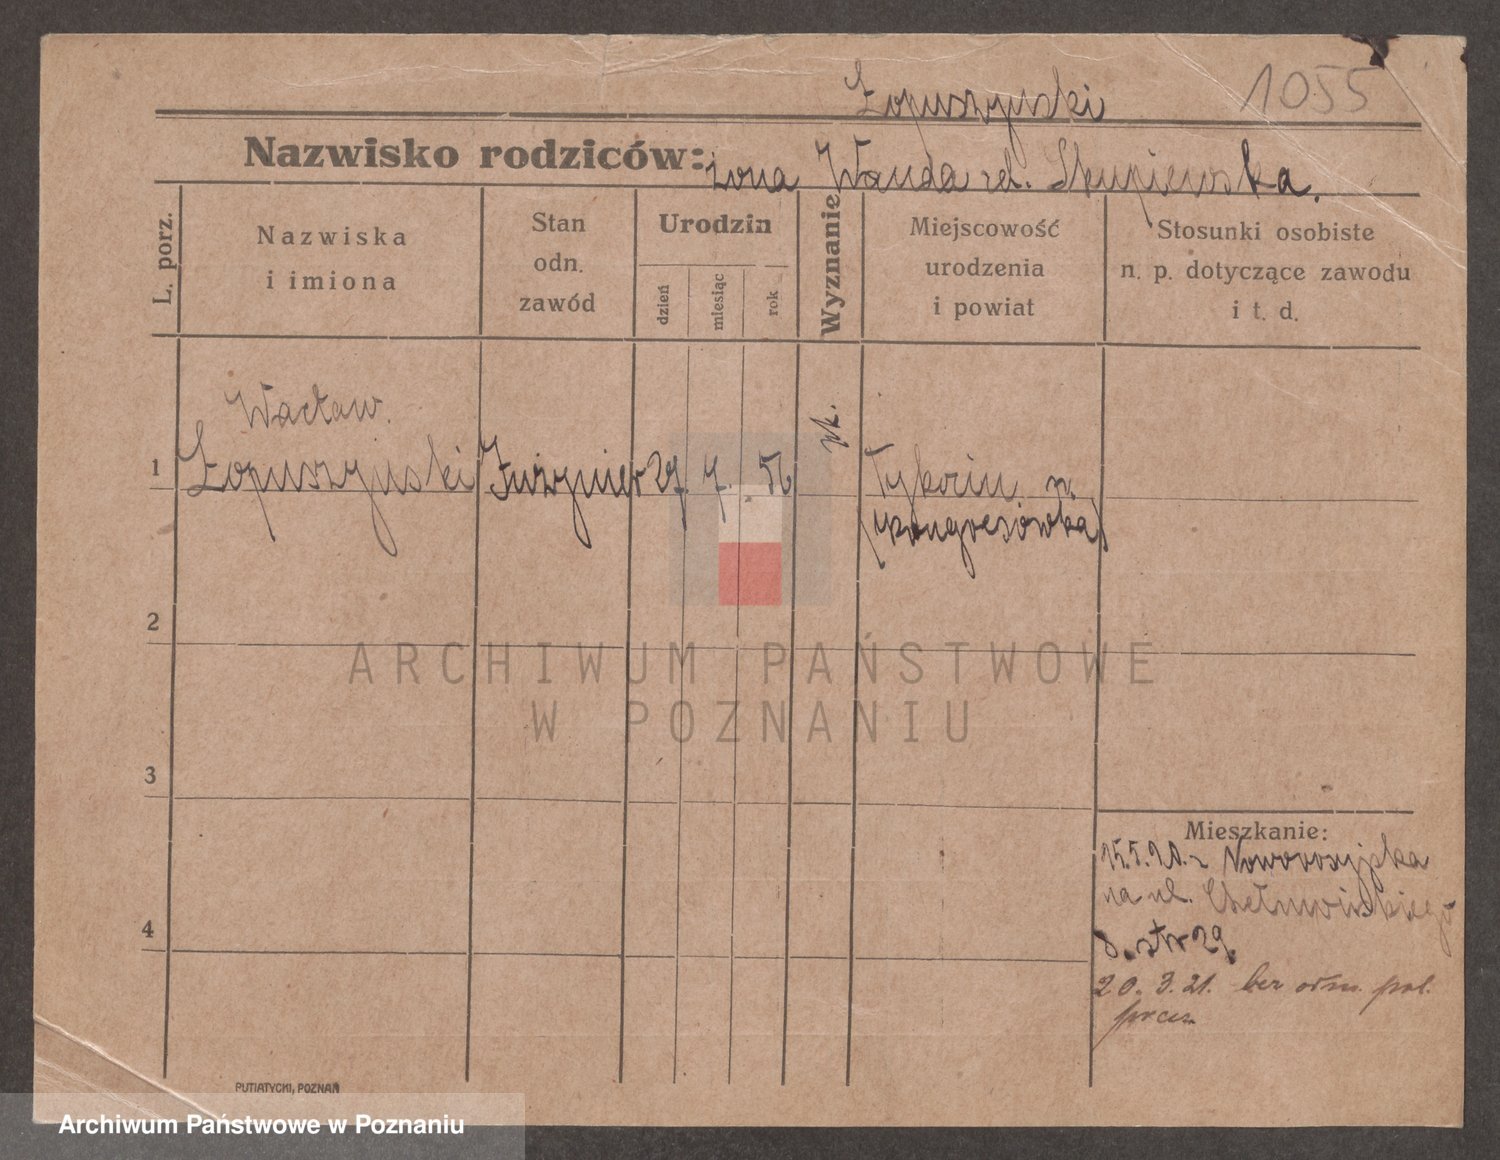 1055
Łopuszyński
Nazwisko rodziców: żona Wanda zd. Skupiewska.
L. porz.
Nazwiska
i imiona
Stan
odn.
zawód
Urodzin
dzień
miesiąc
rok
Wyznanie
Miejscowość
urodzenia
i powiat
Stosunki osobiste
n. p. dotyczące zawodu
i t. d.
Wacław.
1 Łopuszyński Inżynier 29. 7. 56 rk. Tykocin
(kongresówka)
2
ARCHIWUM PAŃSTWOWE
W POZNANIU
3
4
Mieszkanie:
15.5.20.
na ul.
str 29.
20. 3. 21. bez odm. pol.
PUTIATYCKI, POZNAŃ
Archiwum Państwowe w Poznaniu